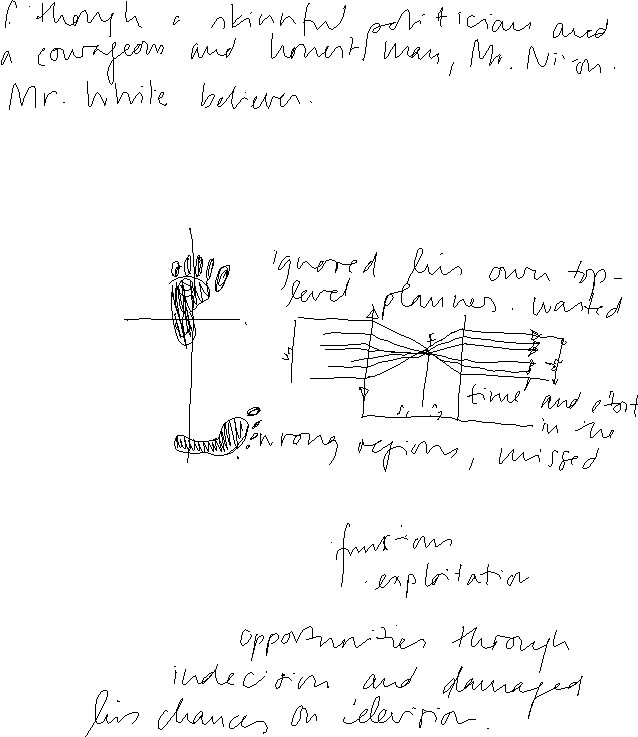 though a skinnful politician and
a courageous and honest man, Mr. Nixon.
Mr. White believer.
ignored his own top-
level planners. wasted
f
time and effort
in the
wrong regions, missed
functions
exploitation
opportunities through
indecision and damaged
his chances on television.